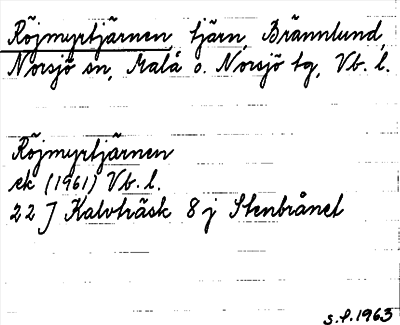 Röjmyrtjärnen, tjärn, Brännlund,
Norsjö sn, Malå o. Norsjö tg, Vb. l.
Röjmyrtjärnen
ek (1961) Vb. l.
22 J Kalvträsk 8 j Stenbrånet
s.f. 1963